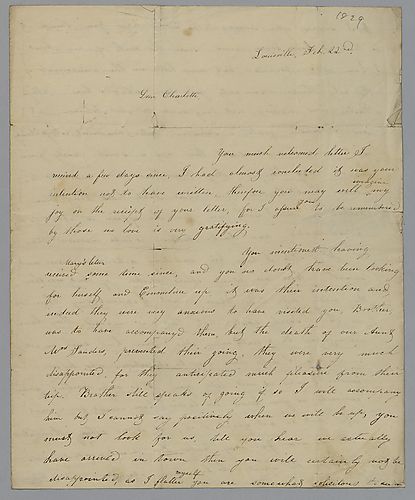 1829
Louisville, Feb. 22d.
Dear Charlotte,
Your much welcomed letter I
received a few days since, I had almost concluded it was your
intention not to have written, therefore you may well imagine my
joy on the receipt of your letter, for I assure you to be remembered
by those we love is very gratifying,
You mentioned having
received Mary's letter some time since, and you no doubt have been looking
for herself and Emmeline up it was their intention and
indeed they were very anxious to have visited you, Brother,
was to have accompanyed them, but the death of our Aunt
Mrs Sanders, prevented their going, they were very much
disappointed, for they anticipated much pleasure from their
trip. Brother still speaks of going if so I will accompany
him but I cannot say positively when we will be up, you
must not look for us till you hear we actually
have arrived in town then you will certainly not be
disappointed, as I flatter myself you are somewhat solicitous to